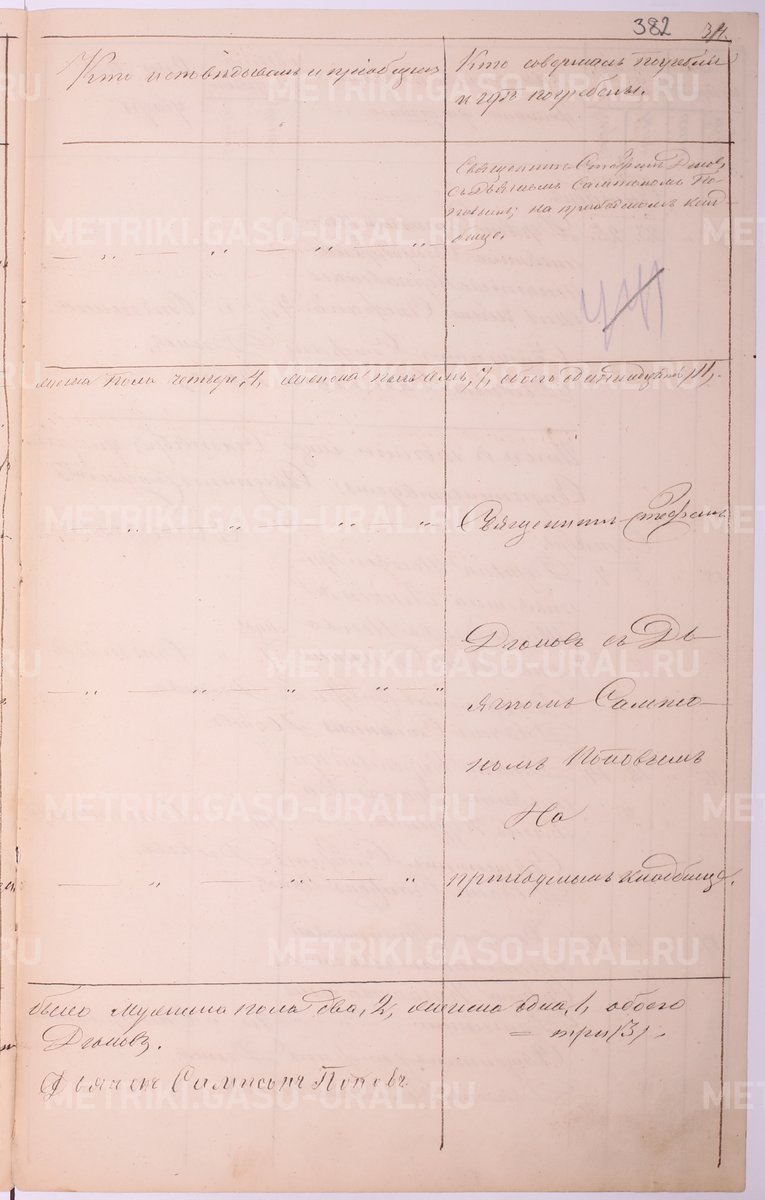 382
Кто исповѣдывалъ и пріобщалъ
Кто совершалъ погребенiе
и гдѣ погребены.
Священникъ Стефанъ Дьконовъ
съ Дьячкомъ Сампсономъ По-
повымъ; на приходскомъ клад-
бище.
мужска пола четыре, 4, женска пола семь, 7, обоего одиннадцать, 11,
Священникъ Стефанъ
съ Дь-
ячкомъ Сампсо-
номъ Поповымъ
На
приходскомъ кладбище.
было мужеска пола два, 2, женска одна, 1, обоего
= три (3).
Дьячекъ Сампсонъ Поповъ
METRIKI.GASO-URAL.RU